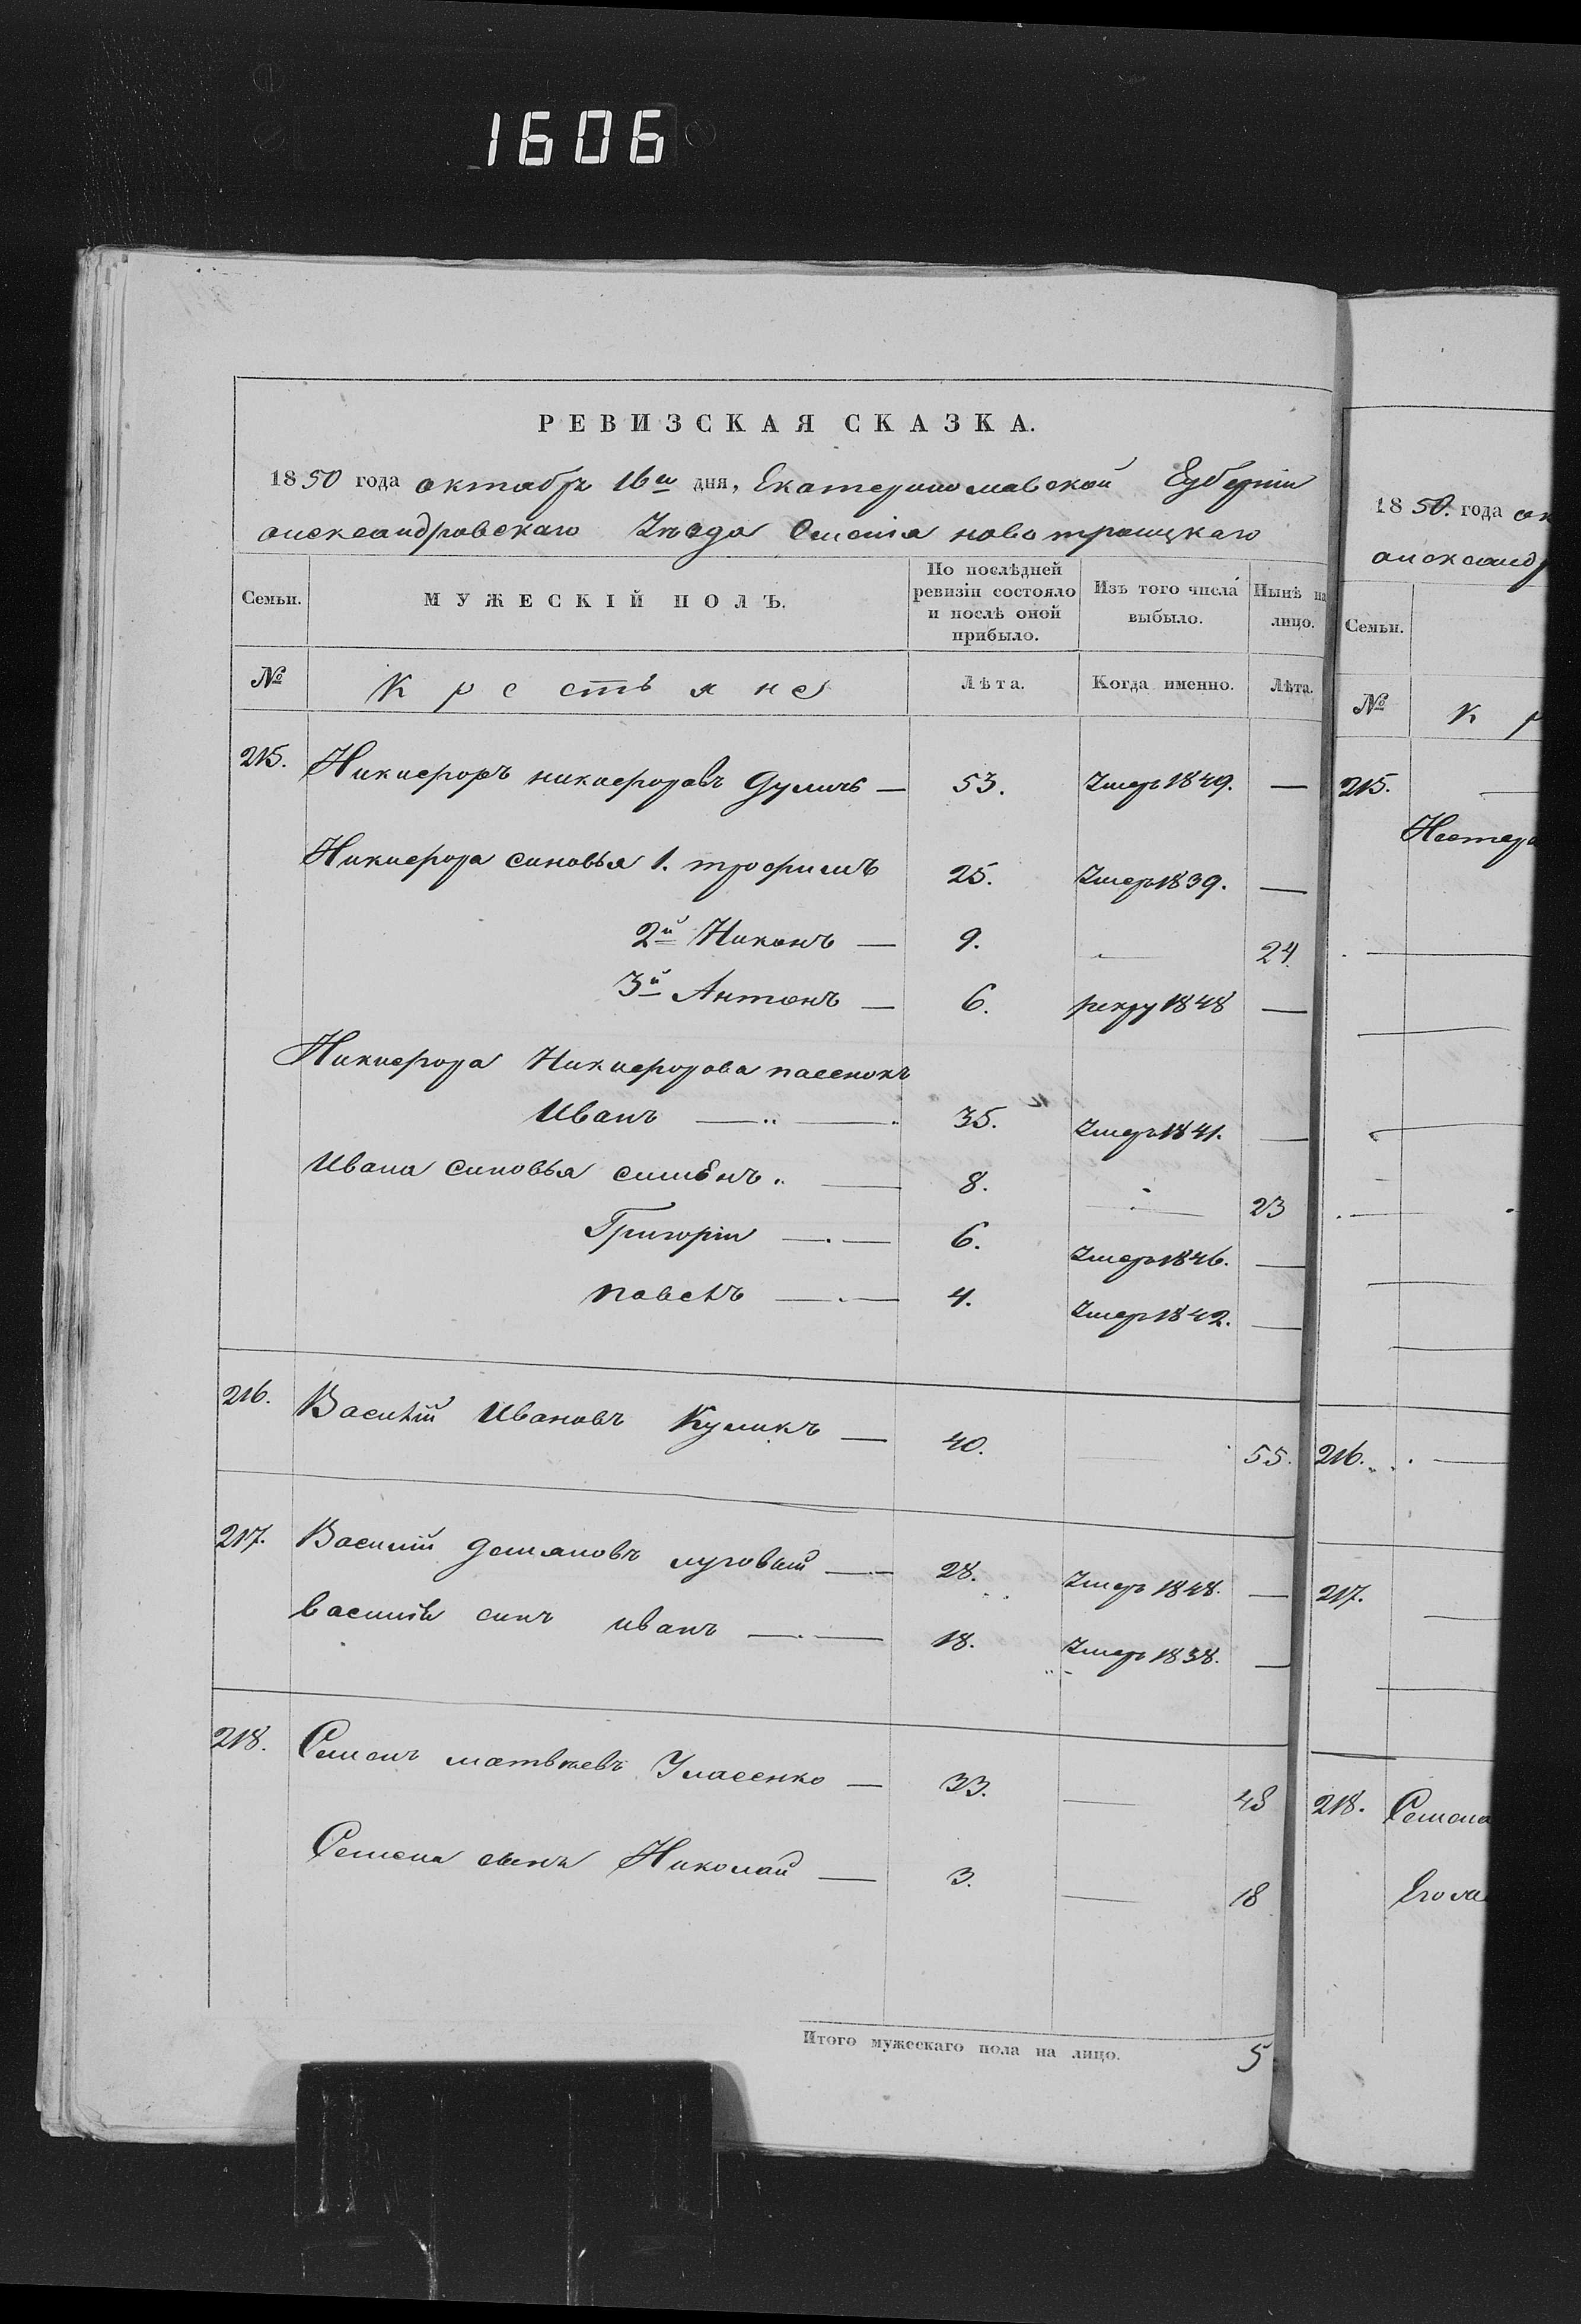 1606
РЕВИЗСКАЯ СКАЗКА.
1850 года октабръ 16го дня, Екатеринославской Губерніи
александровскаго Уезда Селенія новотроицкаго
Семьи. МУЖЕСКІЙ ПОЛЪ. По послѣдней ревизіи состояло и послѣ оной прибыло. Изъ того числа выбыло. Нынѣ на лицо.
№ Крестьяне Лѣта. Когда именно. Лѣта.
215. Никифоръ никифоровъ Дуличь — 53. Умеръ 1849. —
Никифора синовья 1. трофимъ 25. Умеръ 1839. —
2й Никонъ — 9. — 24.
3й Антонъ — 6. рекру 1848 —
Никифора Никифорова пасенокъ
Иванъ — 35. Умеръ 1841. —
Ивана синовья симонъ — 8. — 23
Григоріи — 6. Умеръ 1846. —
павелъ — 4. Умеръ 1842. —
216. Василій Ивановъ Куликъ — 40. 55.
217. Василій демяновъ луговый — 28. Умеръ 1848. —
василія синъ иванъ — 18. Умеръ 1838. —
218. Семенъ матвѣевъ Уласенко — 33. — 48
Семена сынъ Николай — 3. — 18
Итого мужескаго пола на лицо. 5
1850. года ок
александр
Семьи.
№ К р
215. —
216. —
217. —
218. Семена
Его